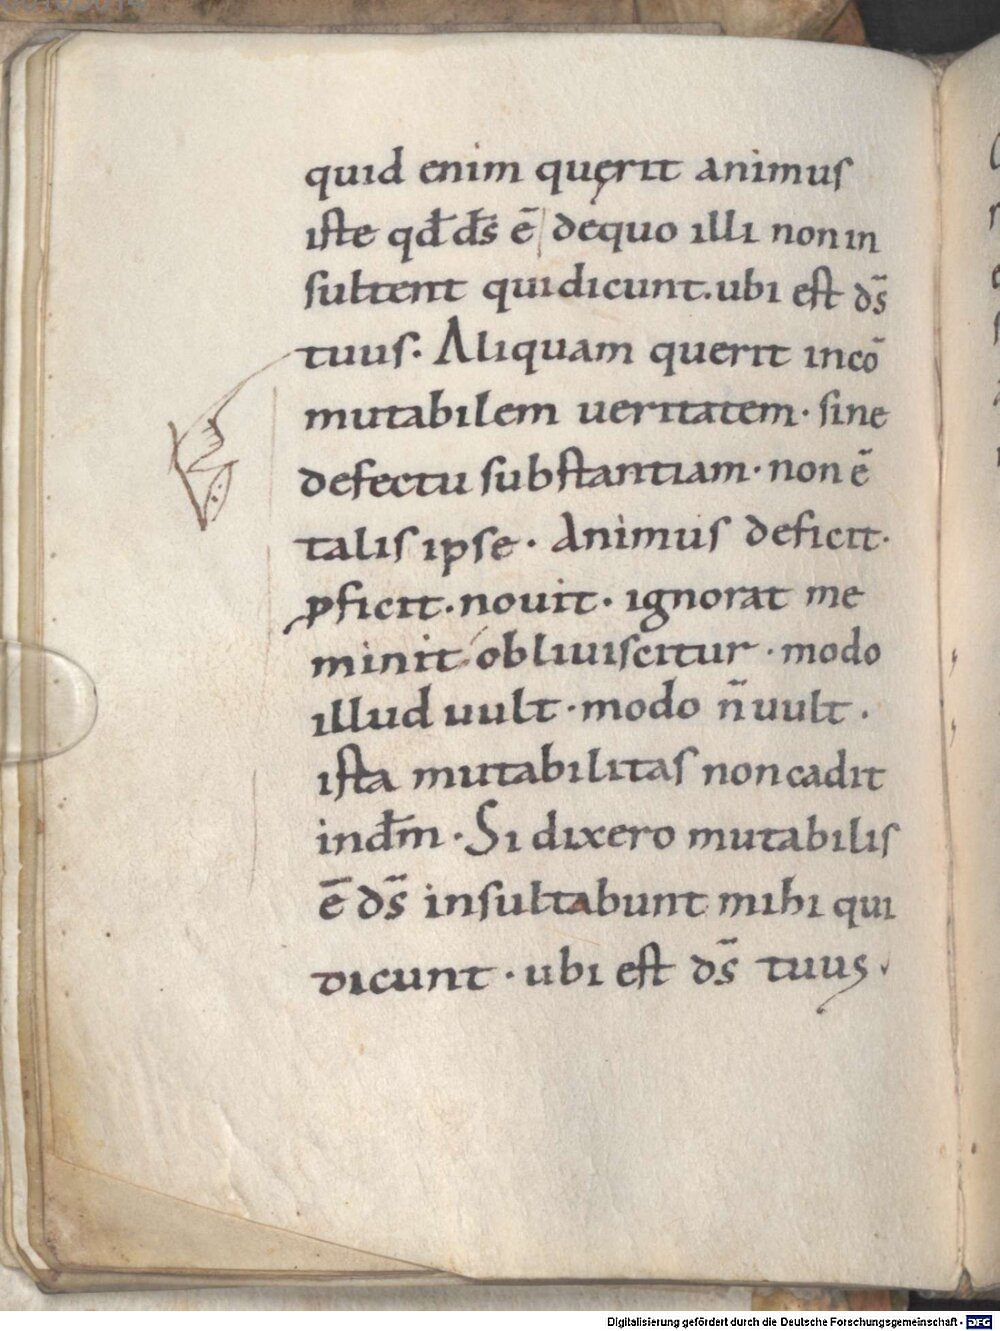 quid enim quęrit animus
iste qđ d̄s ē dequo illi non in
sultent quidicunt. ubi est d̄s
tuus. Aliquam querit incō
mutabilem ueritatem · sine
defectu substantiam · non ē
talis ipse · Animus deficit ·
ꝓficit · nouit · ignorat me
minit obliuiscitur · modo
illud uult · modo n̄ uult ·
ista mutabilitas non cadit
in dm̄ · Si dixero mutabilis
ē d̄s insultabunt mihi qui
dicunt · ubi est d̄s tuus ·
Digitalisierung gefördert durch die Deutsche Forschungsgemeinschaft - DFG